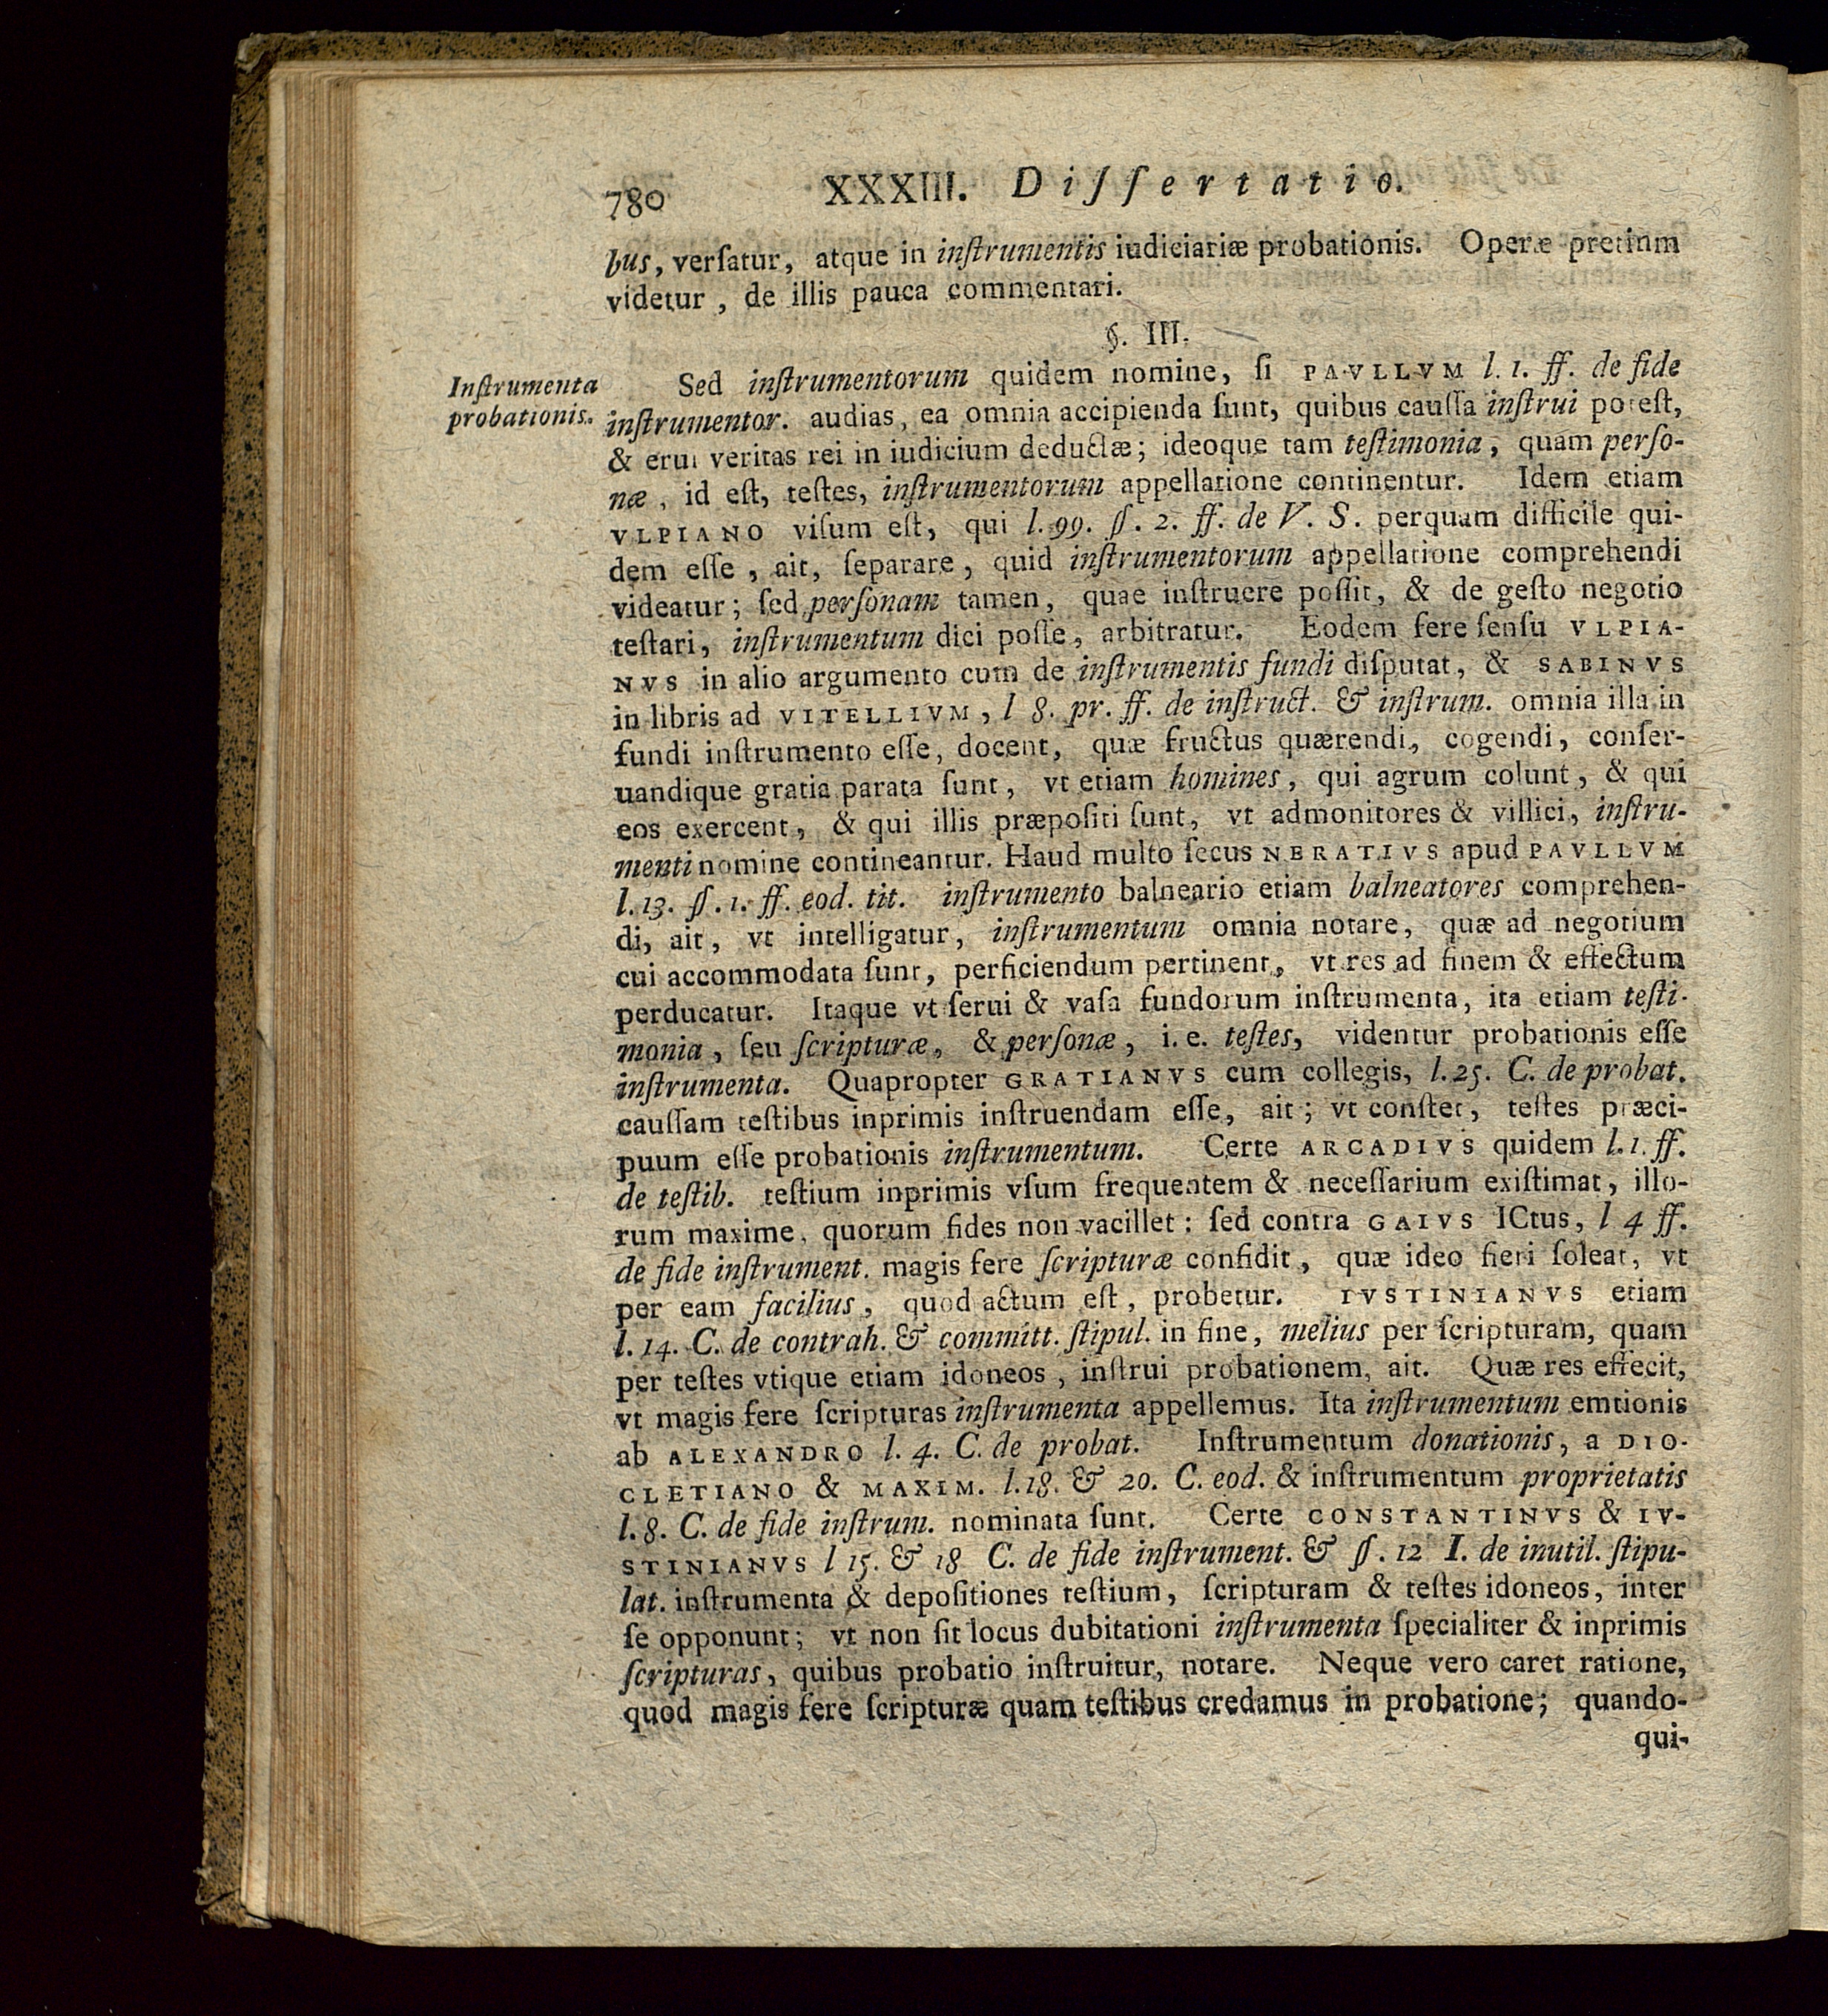 780 XXXIII. Diſſertatio.
bus, verſatur, atque in inſtrumentis iudiciariæ probationis. Operæ pretium
videtur, de illis pauca commentari.
§. III.
Inſtrumenta
probationis.
Sed inſtrumentorum quidem nomine, ſi PAVLLVM l. 1. ff. de fide
inſtrumentor. audias, ea omnia accipienda ſunt, quibus cauſſa inſtrui poteſt,
& erui veritas rei in iudicium deductæ; ideoque tam teſtimonia, quam perſo-
næ, id eſt, teſtes, inſtrumentorum appellatione continentur. Idem etiam
VLPIANO viſum eſt, qui l. 99. §. 2. ff. de V. S. perquam difficile qui-
dem eſſe, ait, ſeparare, quid inſtrumentorum appellatione comprehendi
videatur; ſed perſonam tamen, quae inſtruere poſſit, & de geſto negotio
teſtari, inſtrumentum dici poſſe, arbitratur. Eodem fere ſenſu VLPIA-
NVS in alio argumento cum de inſtrumentis fundi diſputat, & SABINVS
in libris ad VITELLIVM, l 8. pr. ff. de inſtruct. & inſtrum. omnia illa in
fundi inſtrumento eſſe, docent, quæ fructus quærendi, cogendi, conſer-
uandique gratia parata ſunt, vt etiam homines, qui agrum colunt, & qui
eos exercent, & qui illis præpoſiti ſunt, vt admonitores & villici, inſtru-
menti nomine contineantur. Haud multo ſecus NERATIVS apud PAVLLVM
l. 13. §. 1. ff. eod. tit. inſtrumento balneario etiam balneatores comprehen-
di, ait, vt intelligatur, inſtrumentum omnia notare, quæ ad negotium
cui accommodata ſunt, perficiendum pertinent, vt res ad finem & effectum
perducatur. Itaque vt ſerui & vaſa fundorum inſtrumenta, ita etiam teſti-
monia, ſeu ſcripturæ, & perſonæ, i. e. teſtes, videntur probationis eſſe
inſtrumenta. Quapropter GRATIANVS cum collegis, l. 25. C. de probat.
cauſſam teſtibus inprimis inſtruendam eſſe, ait; vt conſtet, teſtes præci-
puum eſſe probationis inſtrumentum. Certe ARCADIVS quidem l. 1. ff.
de teſtib. teſtium inprimis vſum frequentem & neceſſarium exiſtimat, illo-
rum maxime, quorum fides non vacillet: ſed contra GAIVS ICtus, l 4 ff.
de fide inſtrument. magis fere ſcripturæ confidit, quæ ideo fieri ſoleat, vt
per eam facilius, quod actum eſt, probetur. IVSTINIANVS etiam
l. 14. C. de contrah. & committ. ſtipul. in fine, melius per ſcripturam, quam
per teſtes vtique etiam idoneos, inſtrui probationem, ait. Quæ res effecit,
vt magis fere ſcripturas inſtrumenta appellemus. Ita inſtrumentum emtionis
ab ALEXANDRO l. 4. C. de probat. Inſtrumentum donationis, a DIO-
CLETIANO & MAXIM. l. 18. & 20. C. eod. & inſtrumentum proprietatis
l. 8. C. de fide inſtrum. nominata ſunt. Certe CONSTANTINVS & IV-
STINIANVS l 15. & 18 C. de fide inſtrument. & §. 12 I. de inutil. ſtipu-
lat. inſtrumenta & depoſitiones teſtium, ſcripturam & teſtes idoneos, inter
ſe opponunt; vt non ſit locus dubitationi inſtrumenta ſpecialiter & inprimis
ſcripturas, quibus probatio inſtruitur, notare. Neque vero caret ratione,
quod magis fere ſcripturæ quam teſtibus credamus in probatione; quando-
qui-